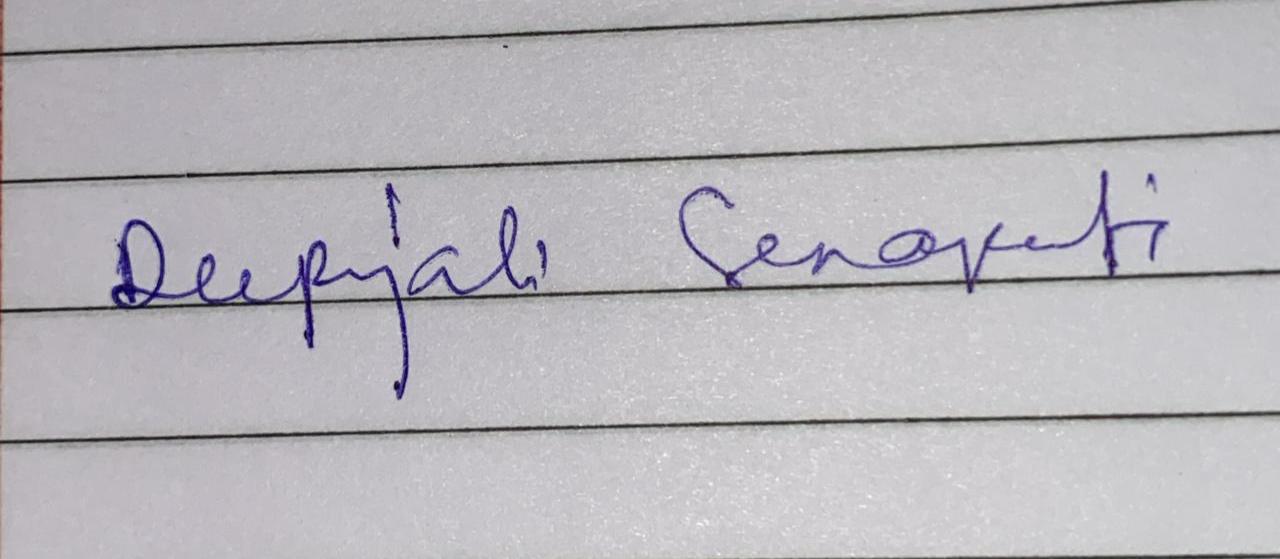 Deepjali Senapati